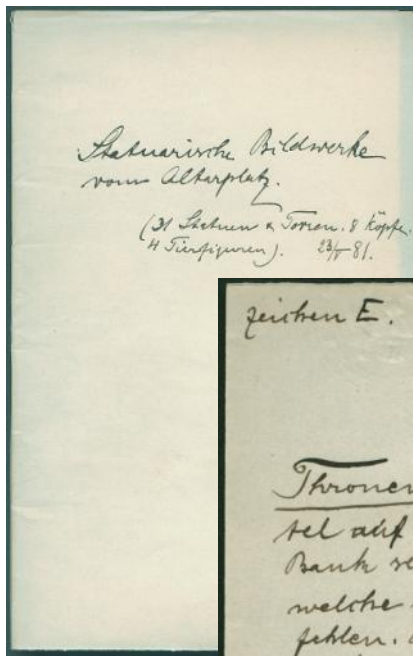 Statuarische Bildwerke
vom Altarplatz.
(31 Statuen & Torsen. 8 Köpfe.
4 Tierfiguren). 23/V 81.
zeichen E.
Thronen
tel auf
Bank
welche
fehlen.